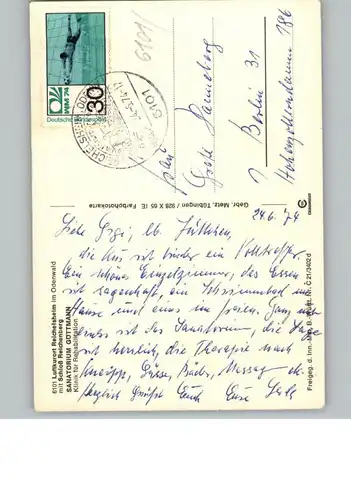 WM 74
30
Deutsche Bundespost
6101
6101
Frau
Grete Henneberg
1 Berlin 31
Hohenzollerndamm 186
Gebr. Metz, Tübingen / 928 X 65 IE Farbphotokarte
6101 Luftkurort Reichelsheim im Odenwald
mit Schloß Reichenberg
SANATORIUM GÖTTMANN
Klinik für Rehabilitation
24.6.74
Liebe Gigi, lb.
die Kur ist wieder ein Volltreffer.
Ein schönes Einzelzimmer, das Essen
ist sagenhaft, ein Schwimmbad im
Hause und eins im freien. Ganz
ist das Sanatorium, die Lage
ist herrlich, die Therapie nach
Kneipp, Güsse, Bäder, Massag
Herzlich grüßt Euch Eure